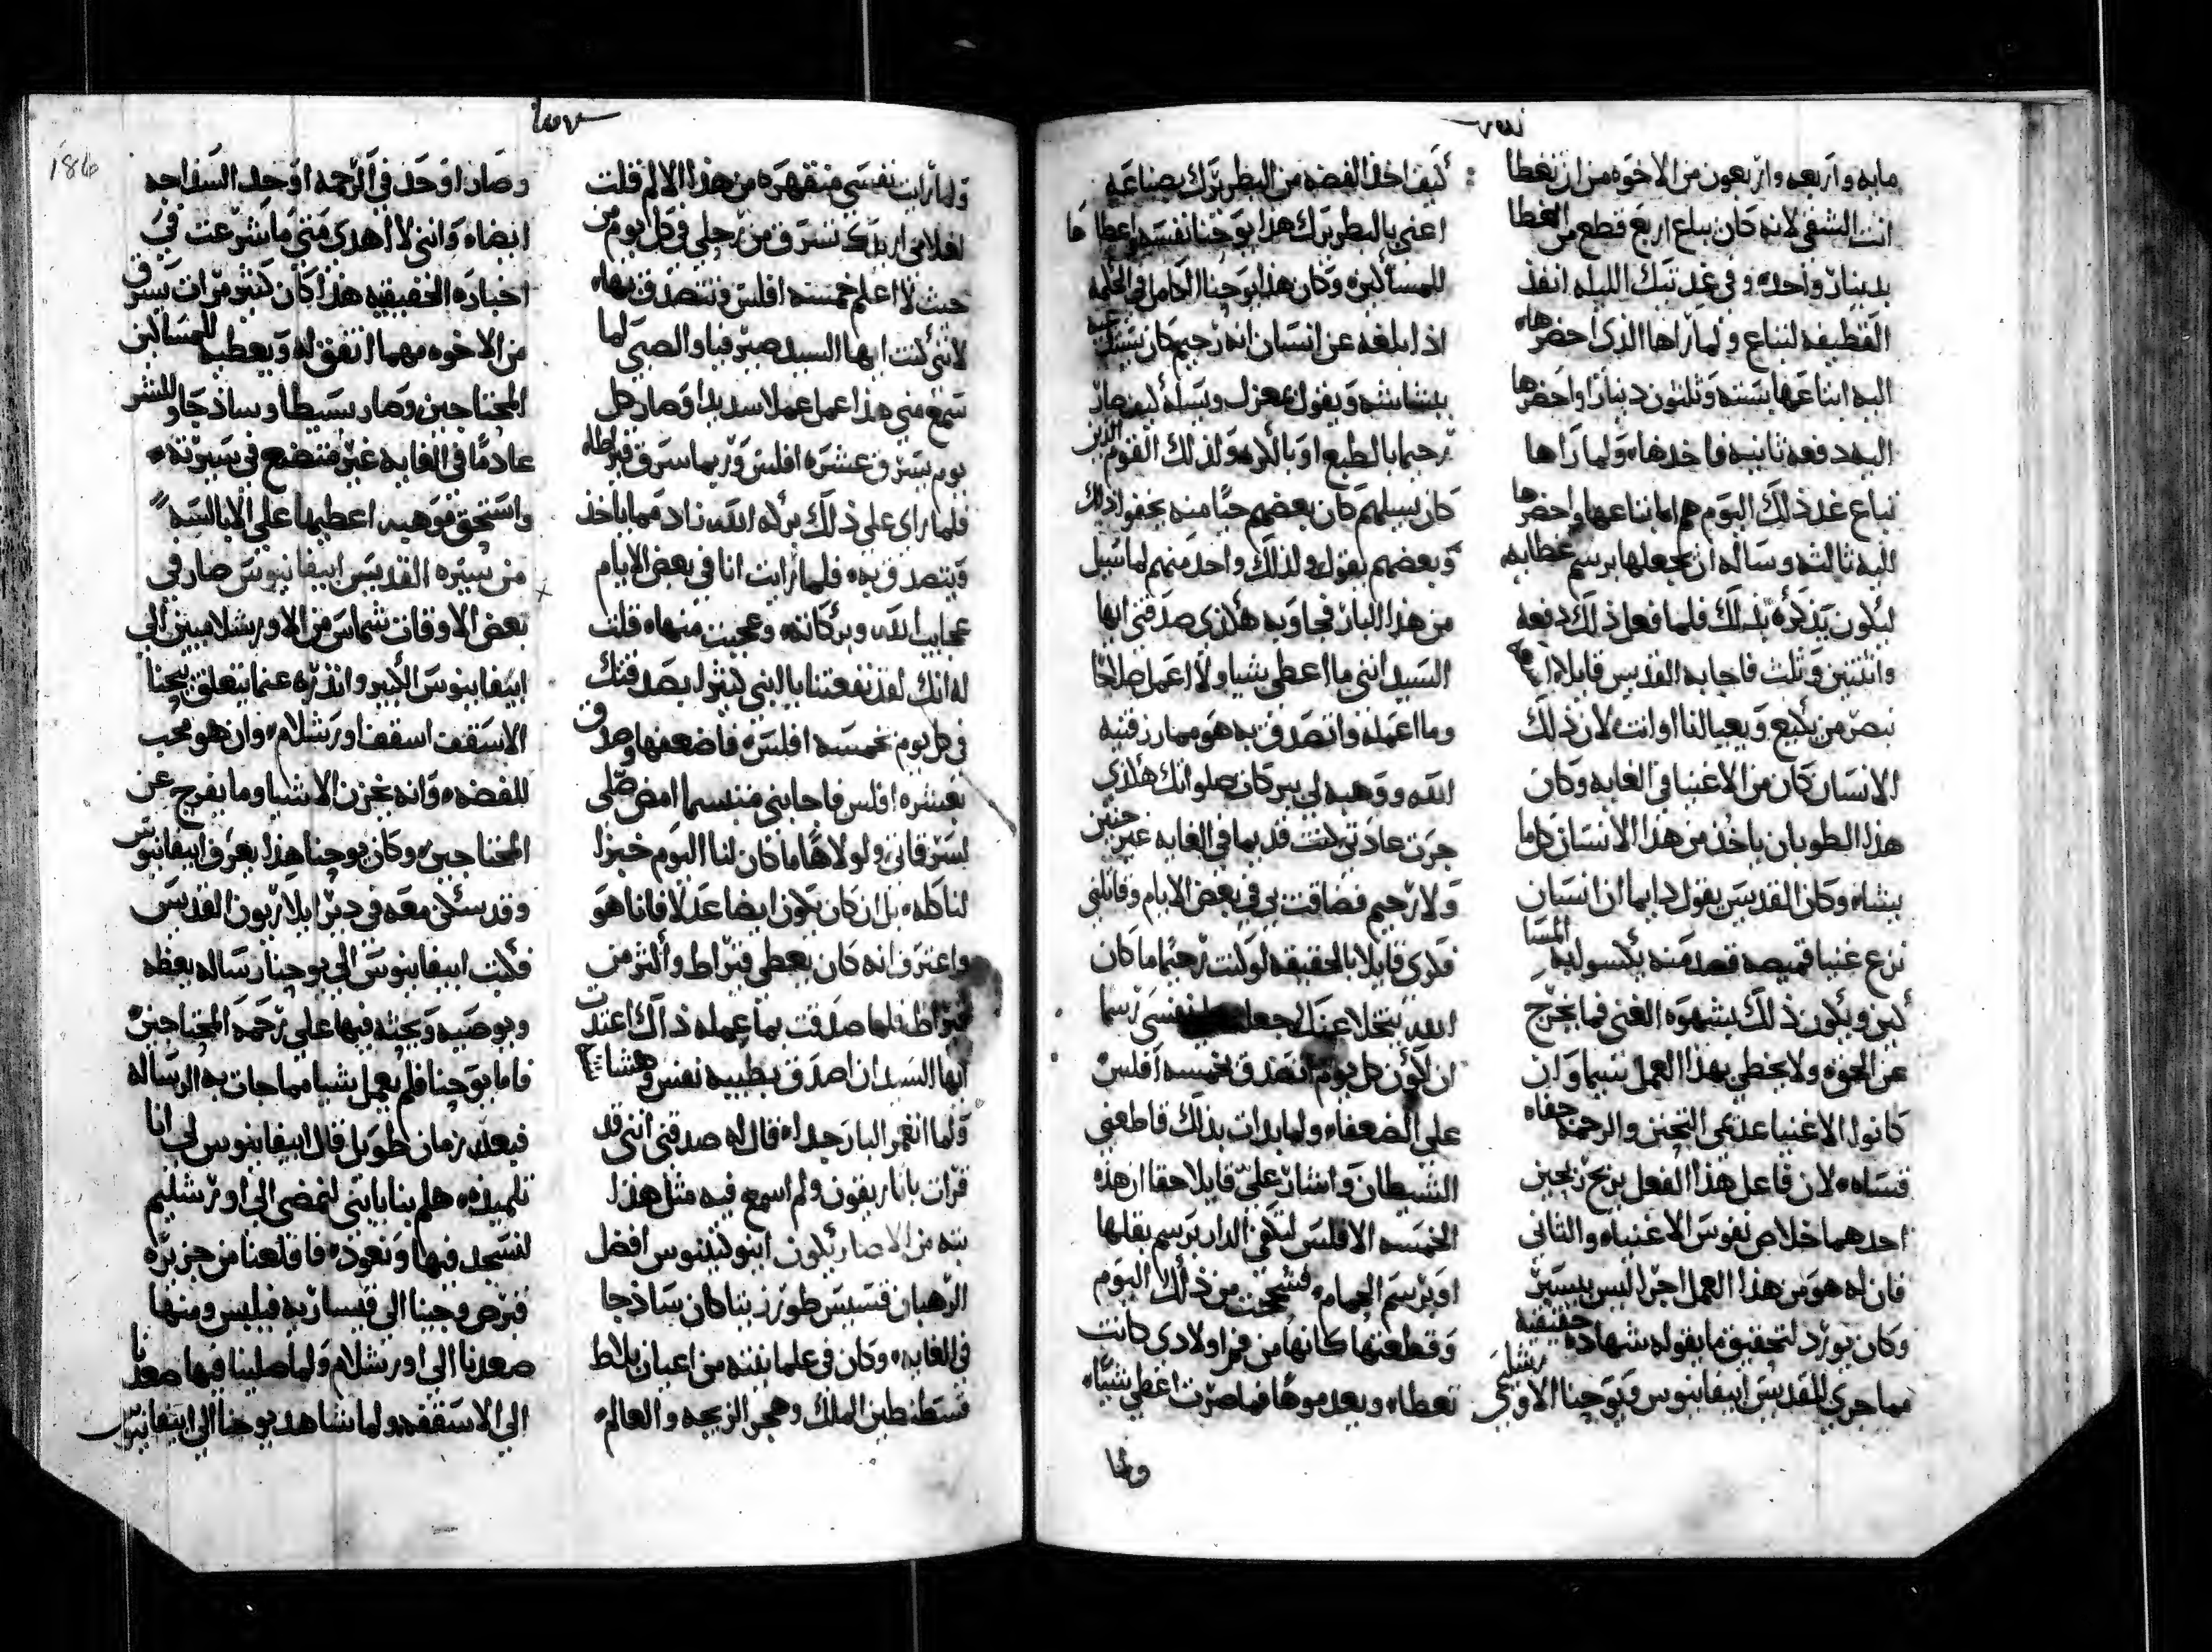 مايه واربعه واربعون من الاخوه من ان تغطا
انت الشقي لانه كان يباع اربع قطع من الغطا
بدينار واحد، وفي غد تيك الليله انفذ
القطيفه لتباع ولما راها الذي احضرها،
اليه ابتاعها بسته وثلثون دينارا واحضرها
اليه دفعه ثانيه فاخدها، ولما راها
تباع غد ذلك اليوم هم ابتاعها واحضرها
اليه ثالثه وساله ان يجعلها برسم غطايه
ليكون يذكره بذلك فلما فعل ذلك دفعه
واثنتين وثلث فاجابه القديس قايلا
نبصر من يكيع ويعيا لنا او انت، لان ذلك
الانسان كان من الاغنيا في الغايه وكان
هذا الطوبان ياخذ من هذا الانسان كل ما
يشاء وكان القديس يقول دايما ان انسان
نزع غنيا قميصه قصد منه يكسوا به المسا
كين ويكون ذلك بشهوة الغني فما يخرج
عن الحق، ولا يخطي بهذا العمل شيا وان
كانوا الاغنيا عديمي التحنن والرحمه جفاه
قساه، لان فاعل هذا الفعل يربح ربحين
احدهما خلاص نفوس الاغنياء والثاني
فان له هو من هذا العمل اجرا ليس بيسير
وكان يورد لتحقيق ما يقوله شهاده حقيقيه
مما جري للقديس ابيفانيوس ويوحنا الاورشليمي
كيف اخذ الفضه من البطريرك بصناعه
اعني بالبطريرك هذا يوحنا نفسه واعطاها
للمساكين، وكان هذا يوحنا الكامل في الحكمه
اذا بلغه عن انسان انه رحيم كان يستدعيه
ببشاشه ويقول بمعزل ويسله كيف صار
رحيما بالطبع او بالكره ولذلك القوم الذين
كان يسلهم كان بعضهم حيا منه يخفوا ذلك
وبعضهم يقول ولذلك واحد منهم لما سيل
من هذا البار فجاوبه هكذي صدقني ايها
السيد انني ما اعطي شيا ولا اعمل صلاحا
وما اعمله واتصدق به هو مما رزقنيه
الله ووهبه لي ببركات صلواتك هكذي
جرت عادتي كنت قديما في الغايه غير حنين
ولا رحيم فضاقت بي في بعض الايام وقاتلني
فكري قايلا بالحقيقه لو كنت رحيما ما كان
الله يتخلا عنك فجعلت لنفسي رسما
ان اكون كل يوم اتصدق بخمسه افلس
على الضعفاء ولما بدات بذلك قاطعني
الشيطان واشار علي قايلا حقا ان هذه
الخمسه الافلس لتكفي الدار برسم بقلها
او برسم الحمام، فشححت من ذلك اليوم
وقطعتها كانها من فم اولادي كانت
تعطاء وبعد موها فما صرت اعطي شياء
ولما
ولما رايت نفسي منقهره من هذا الالم قلت
لغلامي اريدك تسرق من رحلي في كل يوم من
حيث لا اعلم خمسه افلس وتتصدق بها،
لانني كنت ايها السيد صيرفيا والصبي لما
سمع مني هذا عمل عملا سديدا وصار كل
يوم يسرق عشره افلس وربما سرق قيراطا
فلما راى على ذلك بركه الله زاد فيما ياخذ
ويتصدق به، فلما رايت انا في بعض الايام
عجايب الله وبركاته، وعجبت منها، قلت
له انك لقد نفعتنا يا ابني كثيرا بصدقتك
في كل يوم بخمسه افلس، فاضعفها وصدق
بعشره افلس فاجابني متبسما امض صلي
لسرقاتي ولولاها ما كان لنا اليوم خبزا
لناكله، بل ان كان يكون ايضا عدلا فانا هو
واعترف انه كان يعطي قيراط واكثر من
قيراط فلما صدقت بما عمله ذاك اعتدت
ايها السيد ان اصدق بطيبه نفس وهشاشه
ولما انغمر البار جدا، قال له صدقني انني قد
قرات باناريقون ولم اسمع فيه مثل هذا
بته من الاصار يكون ابنوكيدنوس افضل
الرهبان قسيس طورزيتا كان ساذجا
في الغايه، وكان في علمانيته من اعيان بلاط
قسطنطين الملك وهجر الزيجه والعالم،
وصار اوحد في الرحمه اوحد السذاجه
ايضاء وانني لا اهدى متى ما شرعت في
اخباره الحقيقيه هذا كان كثير مرات يسرق
من الاخوه مهما اتفق له ويعطيه للمساكين
المحتاجين وصار بسيطا وساذجا وللشر
عادما في الغايه غير متضع في سيرته،
واستحق موهبه اعطيها على الابالسه
من سيره القديس ابيفانيوس صار في
بعض الاوقات شماس من الاورشلاميين الي
ابيفانيوس الكبير وانذره عنما يتعلق بيوحنا
الاسقف اسقف اورشلام، وان هو محب
للفضه، وانه يخزن الاشيا وما يفرج عن
المحتاجين، وكان يوحنا هذا يعرف ابيفانيوس
وقد سكن معه في دير ايلاريون القديس
فكتب ابيفانيوس الي يوحنا رساله يعظه
ويوصيه ويحثه فيها علي رحمه المحتاجين،
فاما يوحنا فلم يعمل شيا مما جات به الرساله
فبعد زمان طويل قال ابيفانيوس لي انا
تلميذه، هلم بنا يا بني لنمضي الي اورشليم
لنسجد فيها ونعود، فاقلعنا من جزيره
قبرص وجينا الي قيساريه فيلبس ومنها
صعدنا الي اورشلام ولما صلينا فيها صعدنا
الي الاسقفه ولما شاهد يوحنا الي ابيفانيوس
186